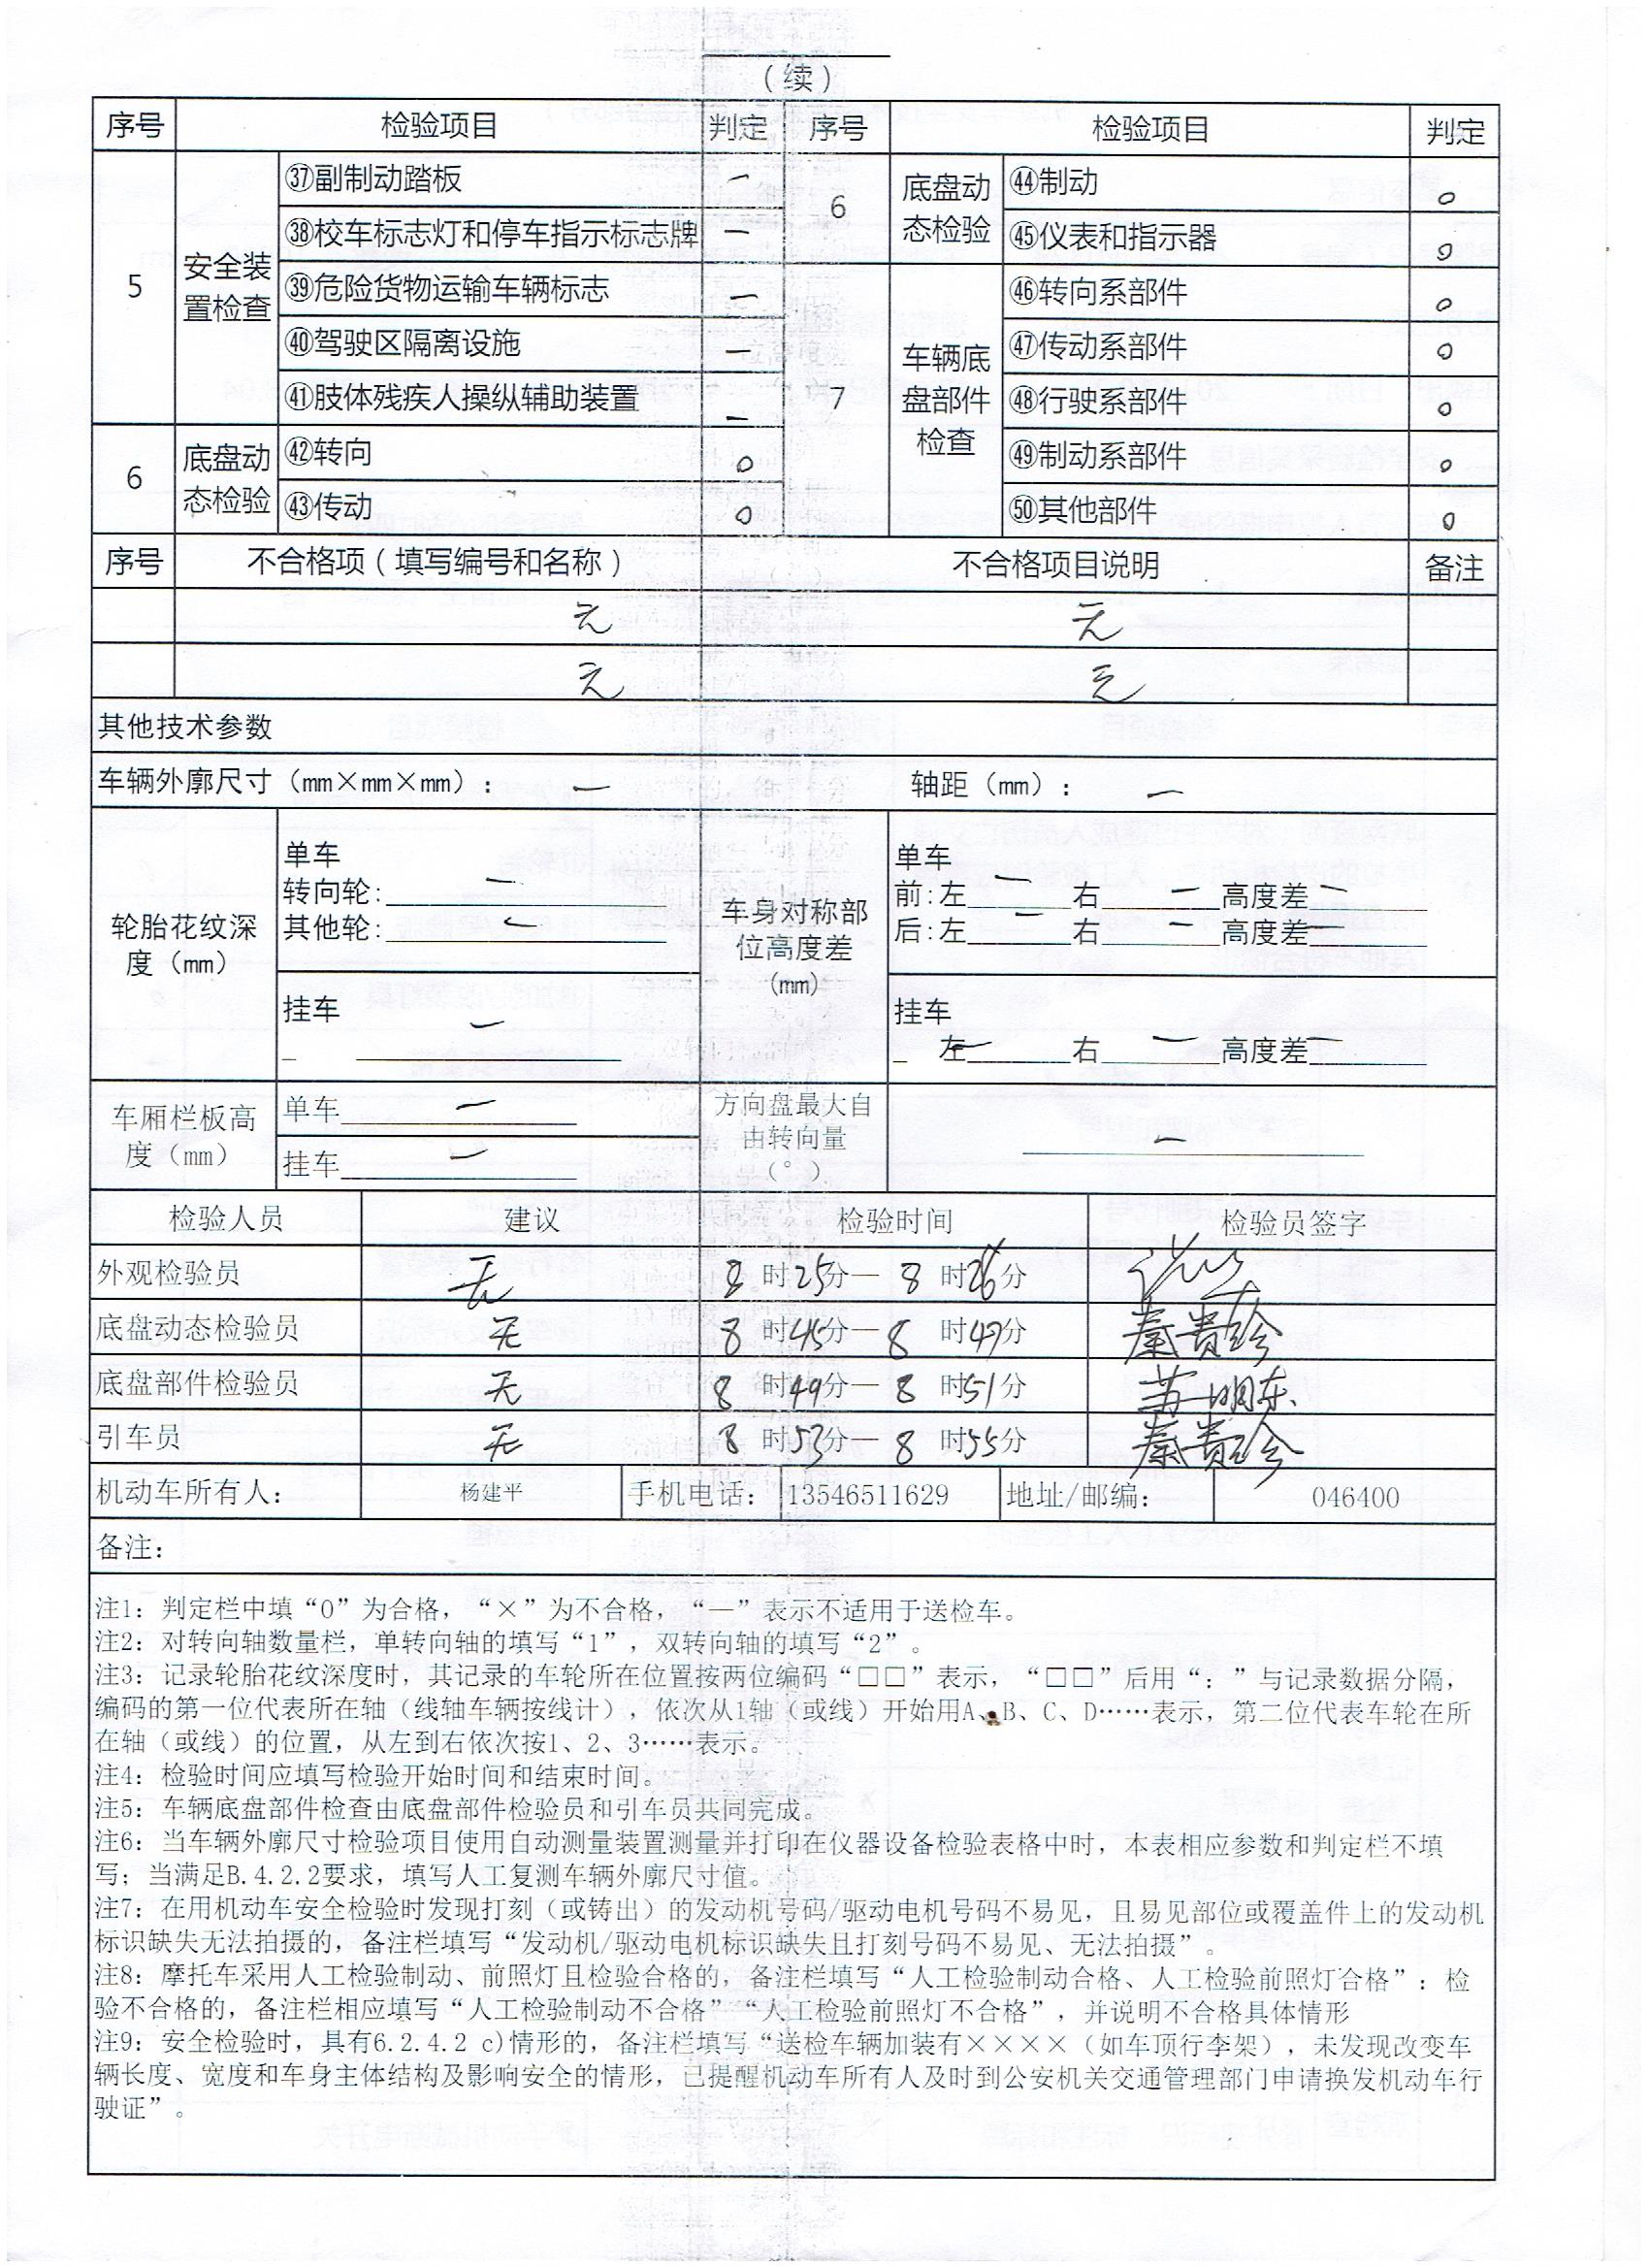 （续）
序号 检验项目 判定 序号 检验项目 判定
5 安全装置检查 ㊲副制动踏板 — 6 底盘动态检验 ㊹制动 o
㊳校车标志灯和停车指示标志牌 — ㊺仪表和指示器 o
㊴危险货物运输车辆标志 — 7 车辆底盘部件检查 ㊻转向系部件 o
㊵驾驶区隔离设施 — ㊼传动系部件 o
㊶肢体残疾人操纵辅助装置 — ㊽行驶系部件 o
6 底盘动态检验 ㊷转向 o ㊾制动系部件 o
㊸传动 o ㊿其他部件 o
序号 不合格项（填写编号和名称） 不合格项目说明 备注
无 无
无 无
其他技术参数
车辆外廓尺寸（mm×mm×mm）: — 轴距（mm）: —
轮胎花纹深度（mm） 车身对称部位高度差（mm）
单车 单车
转向轮: — 前:左 — 右 — 高度差 —
其他轮: — 后:左 — 右 — 高度差 —
挂车 挂车
— 左 — 右 — 高度差 —
车厢栏板高度（mm） 单车 — 方向盘最大自由转向量（°） —
挂车 —
检验人员 建议 检验时间 检验员签字
外观检验员 无 8 时25分— 8 时26分
底盘动态检验员 无 8 时45分— 8 时49分 秦贵珍
底盘部件检验员 无 8 时49分— 8 时51分 苏明东
引车员 无 8 时53分— 8 时55分 秦贵珍
机动车所有人: 杨建平 手机电话: 13546511629 地址/邮编: 046400
备注:
注1: 判定栏中填“0”为合格，“×”为不合格，“—”表示不适用于送检车。
注2: 对转向轴数量栏，单转向轴的填写“1”，双转向轴的填写“2”。
注3: 记录轮胎花纹深度时，其记录的车轮所在位置按两位编码“□□”表示，“□□”后用“: ”与记录数据分隔，
编码的第一位代表所在轴（线轴车辆按线计），依次从1轴（或线）开始用A、B、C、D……表示，第二位代表车轮在所
在轴（或线）的位置，从左到右依次按1、2、3……表示。
注4: 检验时间应填写检验开始时间和结束时间。
注5: 车辆底盘部件检查由底盘部件检验员和引车员共同完成。
注6: 当车辆外廓尺寸检验项目使用自动测量装置测量并打印在仪器设备检验表格中时，本表相应参数和判定栏不填
写; 当满足B.4.2.2要求，填写人工复测车辆外廓尺寸值。
注7: 在用机动车安全检验时发现打刻（或铸出）的发动机号码/驱动电机号码不易见，且易见部位或覆盖件上的发动机
标识缺失无法拍摄的，备注栏填写“发动机/驱动电机标识缺失且打刻号码不易见、无法拍摄”。
注8: 摩托车采用人工检验制动、前照灯且检验合格的，备注栏填写“人工检验制动合格、人工检验前照灯合格”: 检
验不合格的，备注栏相应填写“人工检验制动不合格”“人工检验前照灯不合格”，并说明不合格具体情形
注9: 安全检验时，具有6.2.4.2 c)情形的，备注栏填写“送检车辆加装有××××（如车顶行李架），未发现改变车
辆长度、宽度和车身主体结构及影响安全的情形，已提醒机动车所有人及时到公安机关交通管理部门申请换发机动车行
驶证”。